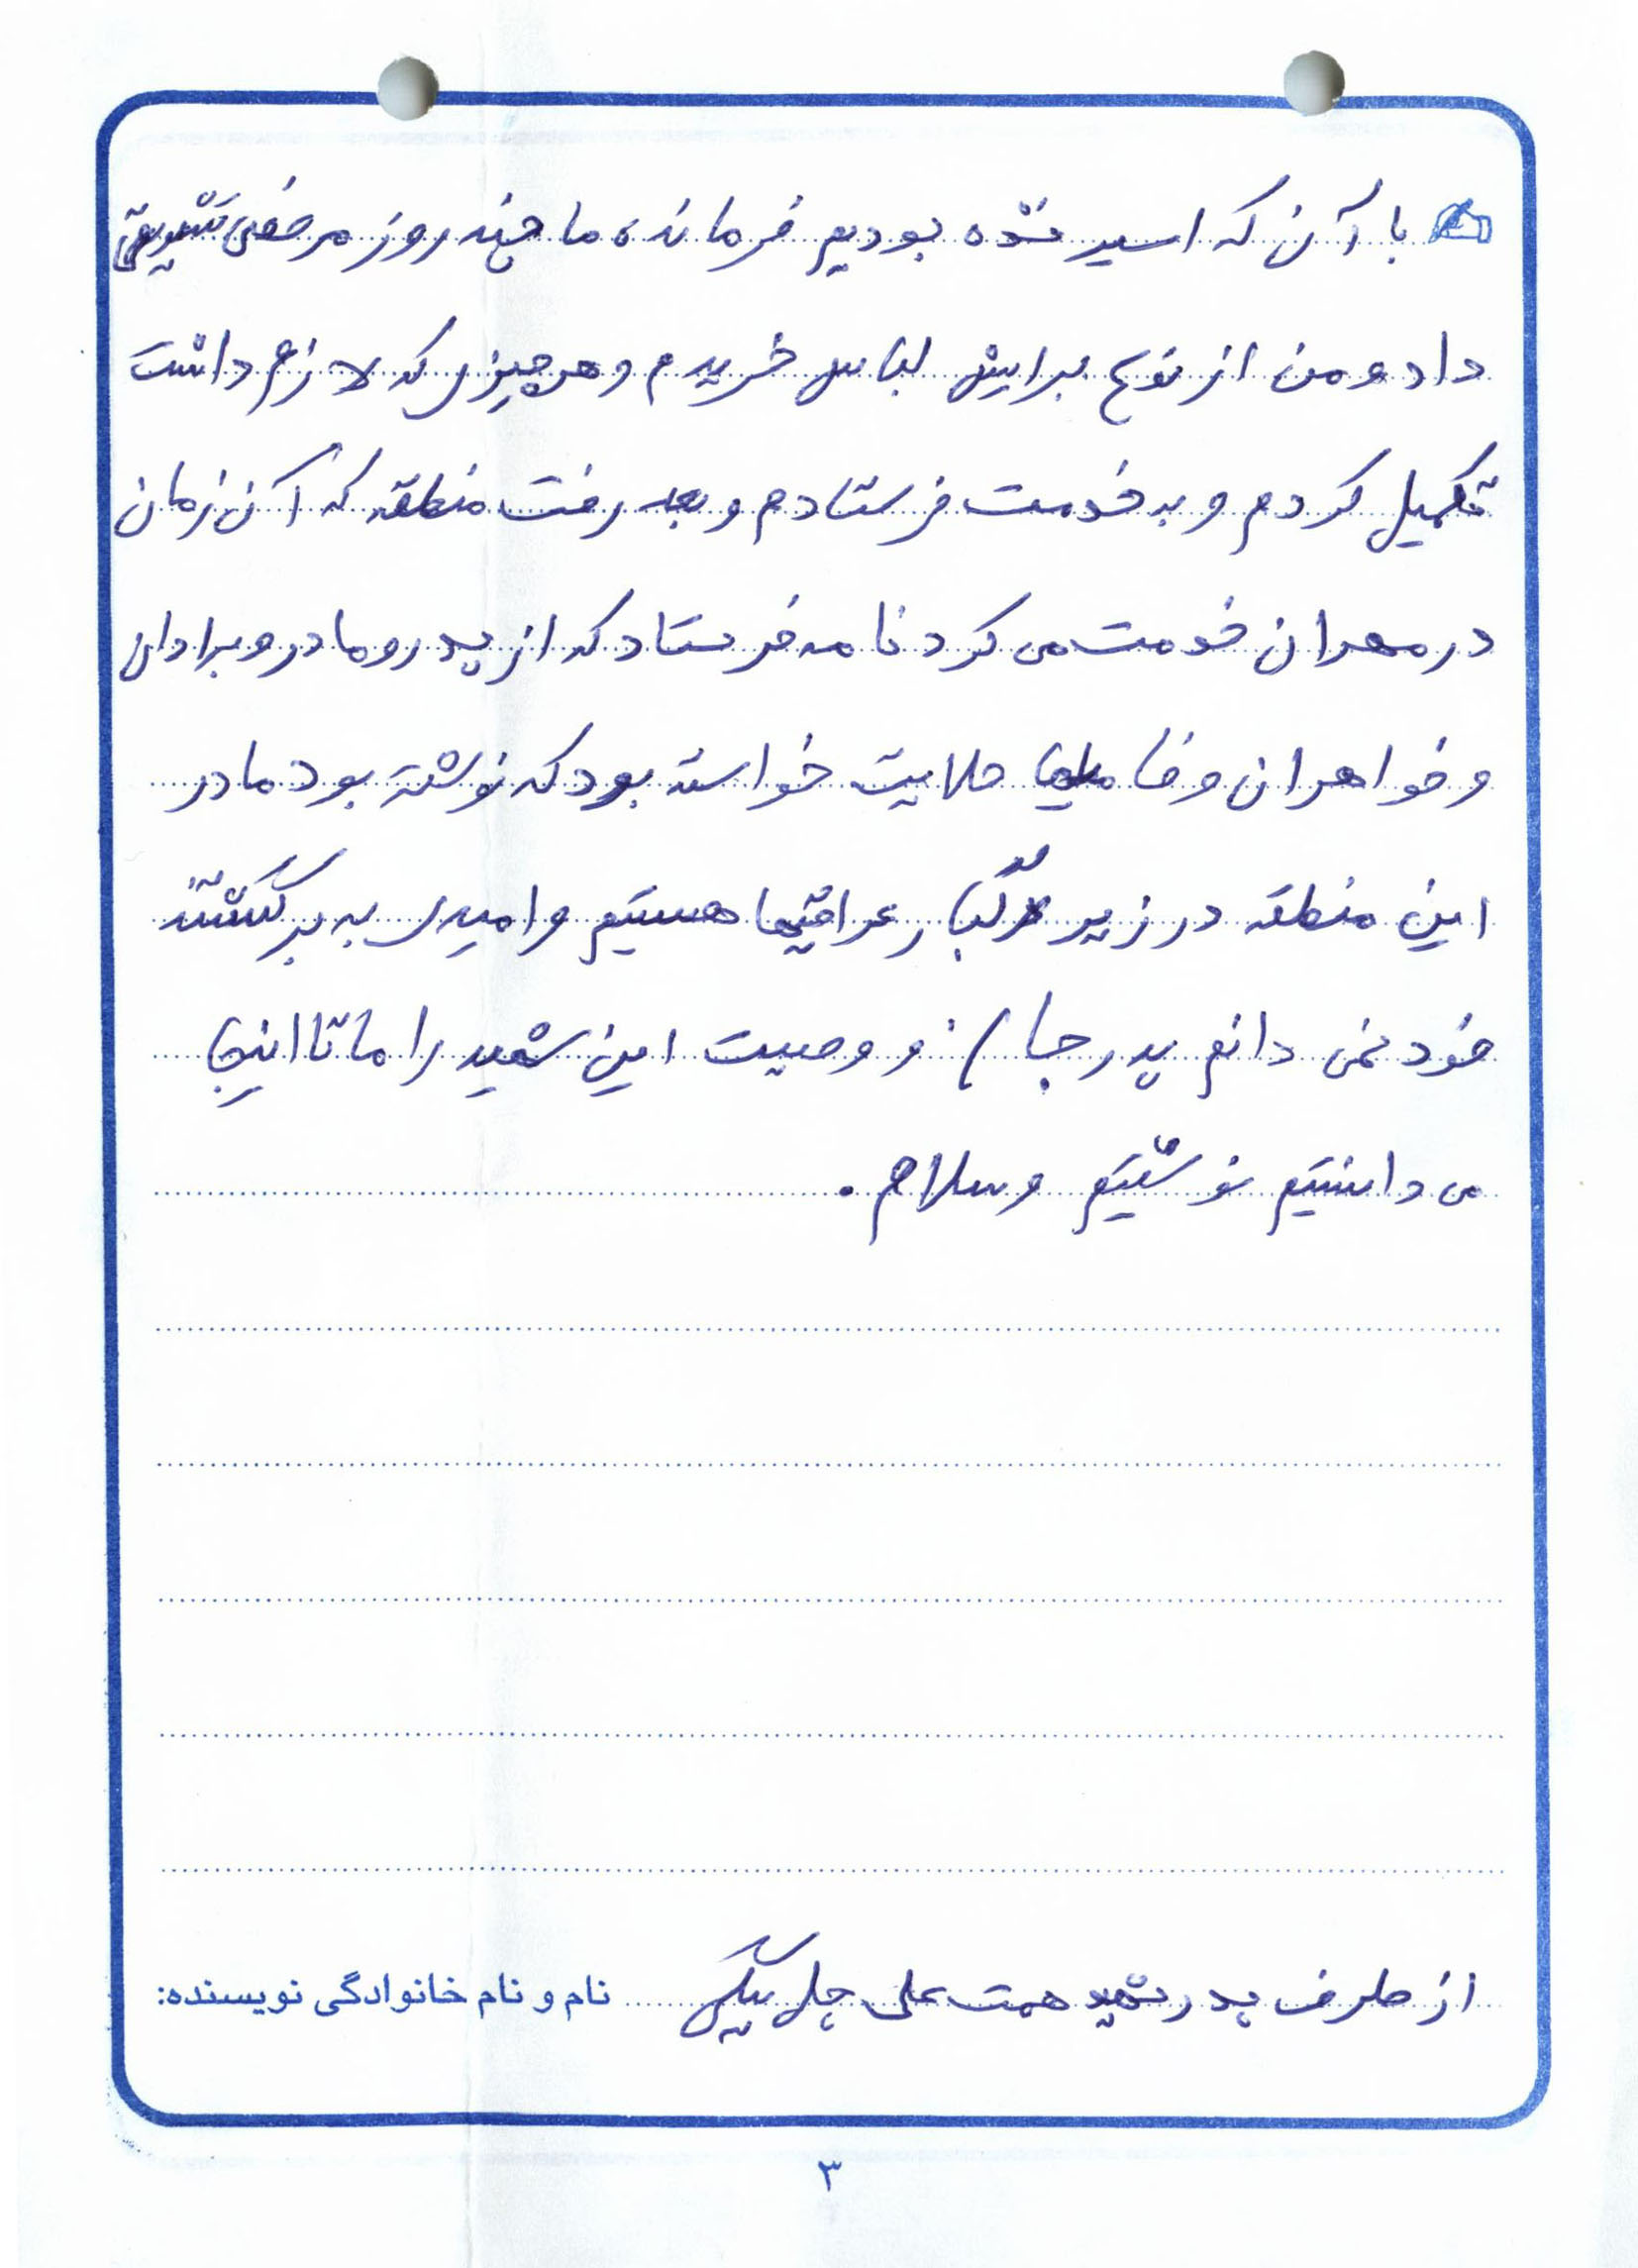 با آن که اسیر شده بودیم فرمانده ما چند روز مرخصی تشویقی
داد و من از نوع برایش لباس خریدم و هر چیزی که لازم داشت
تکمیل کردم و به خدمت فرستادم و بعد رفت منطقه که آن زمان
در مهران خدمت می کرد نامه فرستاد که از پدر و مادر و برادران
و خواهران و فامیلها حلالیت خواسته بود که نوشته بود ما در
این منطقه در زیر رگبار عراقیها هستیم و امیدی به برگشتن
خود نمی دانم پدر جان و وصیت این شهید را ما تا اینجا
می دانستیم نوشتیم وسلام .
نام و نام خانوادگی نویسنده: از طرف پدر شهید همت علی
۳